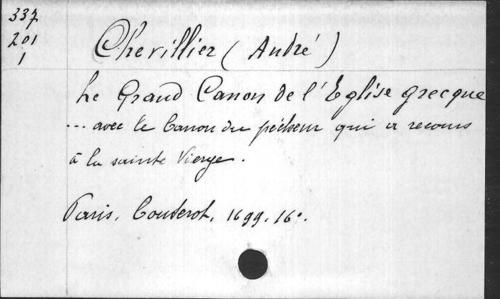 337
201
1
Chevillier (André)
Le Grand Canon de l'Eglise grecque
... avec le Canon du pécheur qui a recours
à la sainte Vierge.
Paris, Couterot, 1699. 16°.